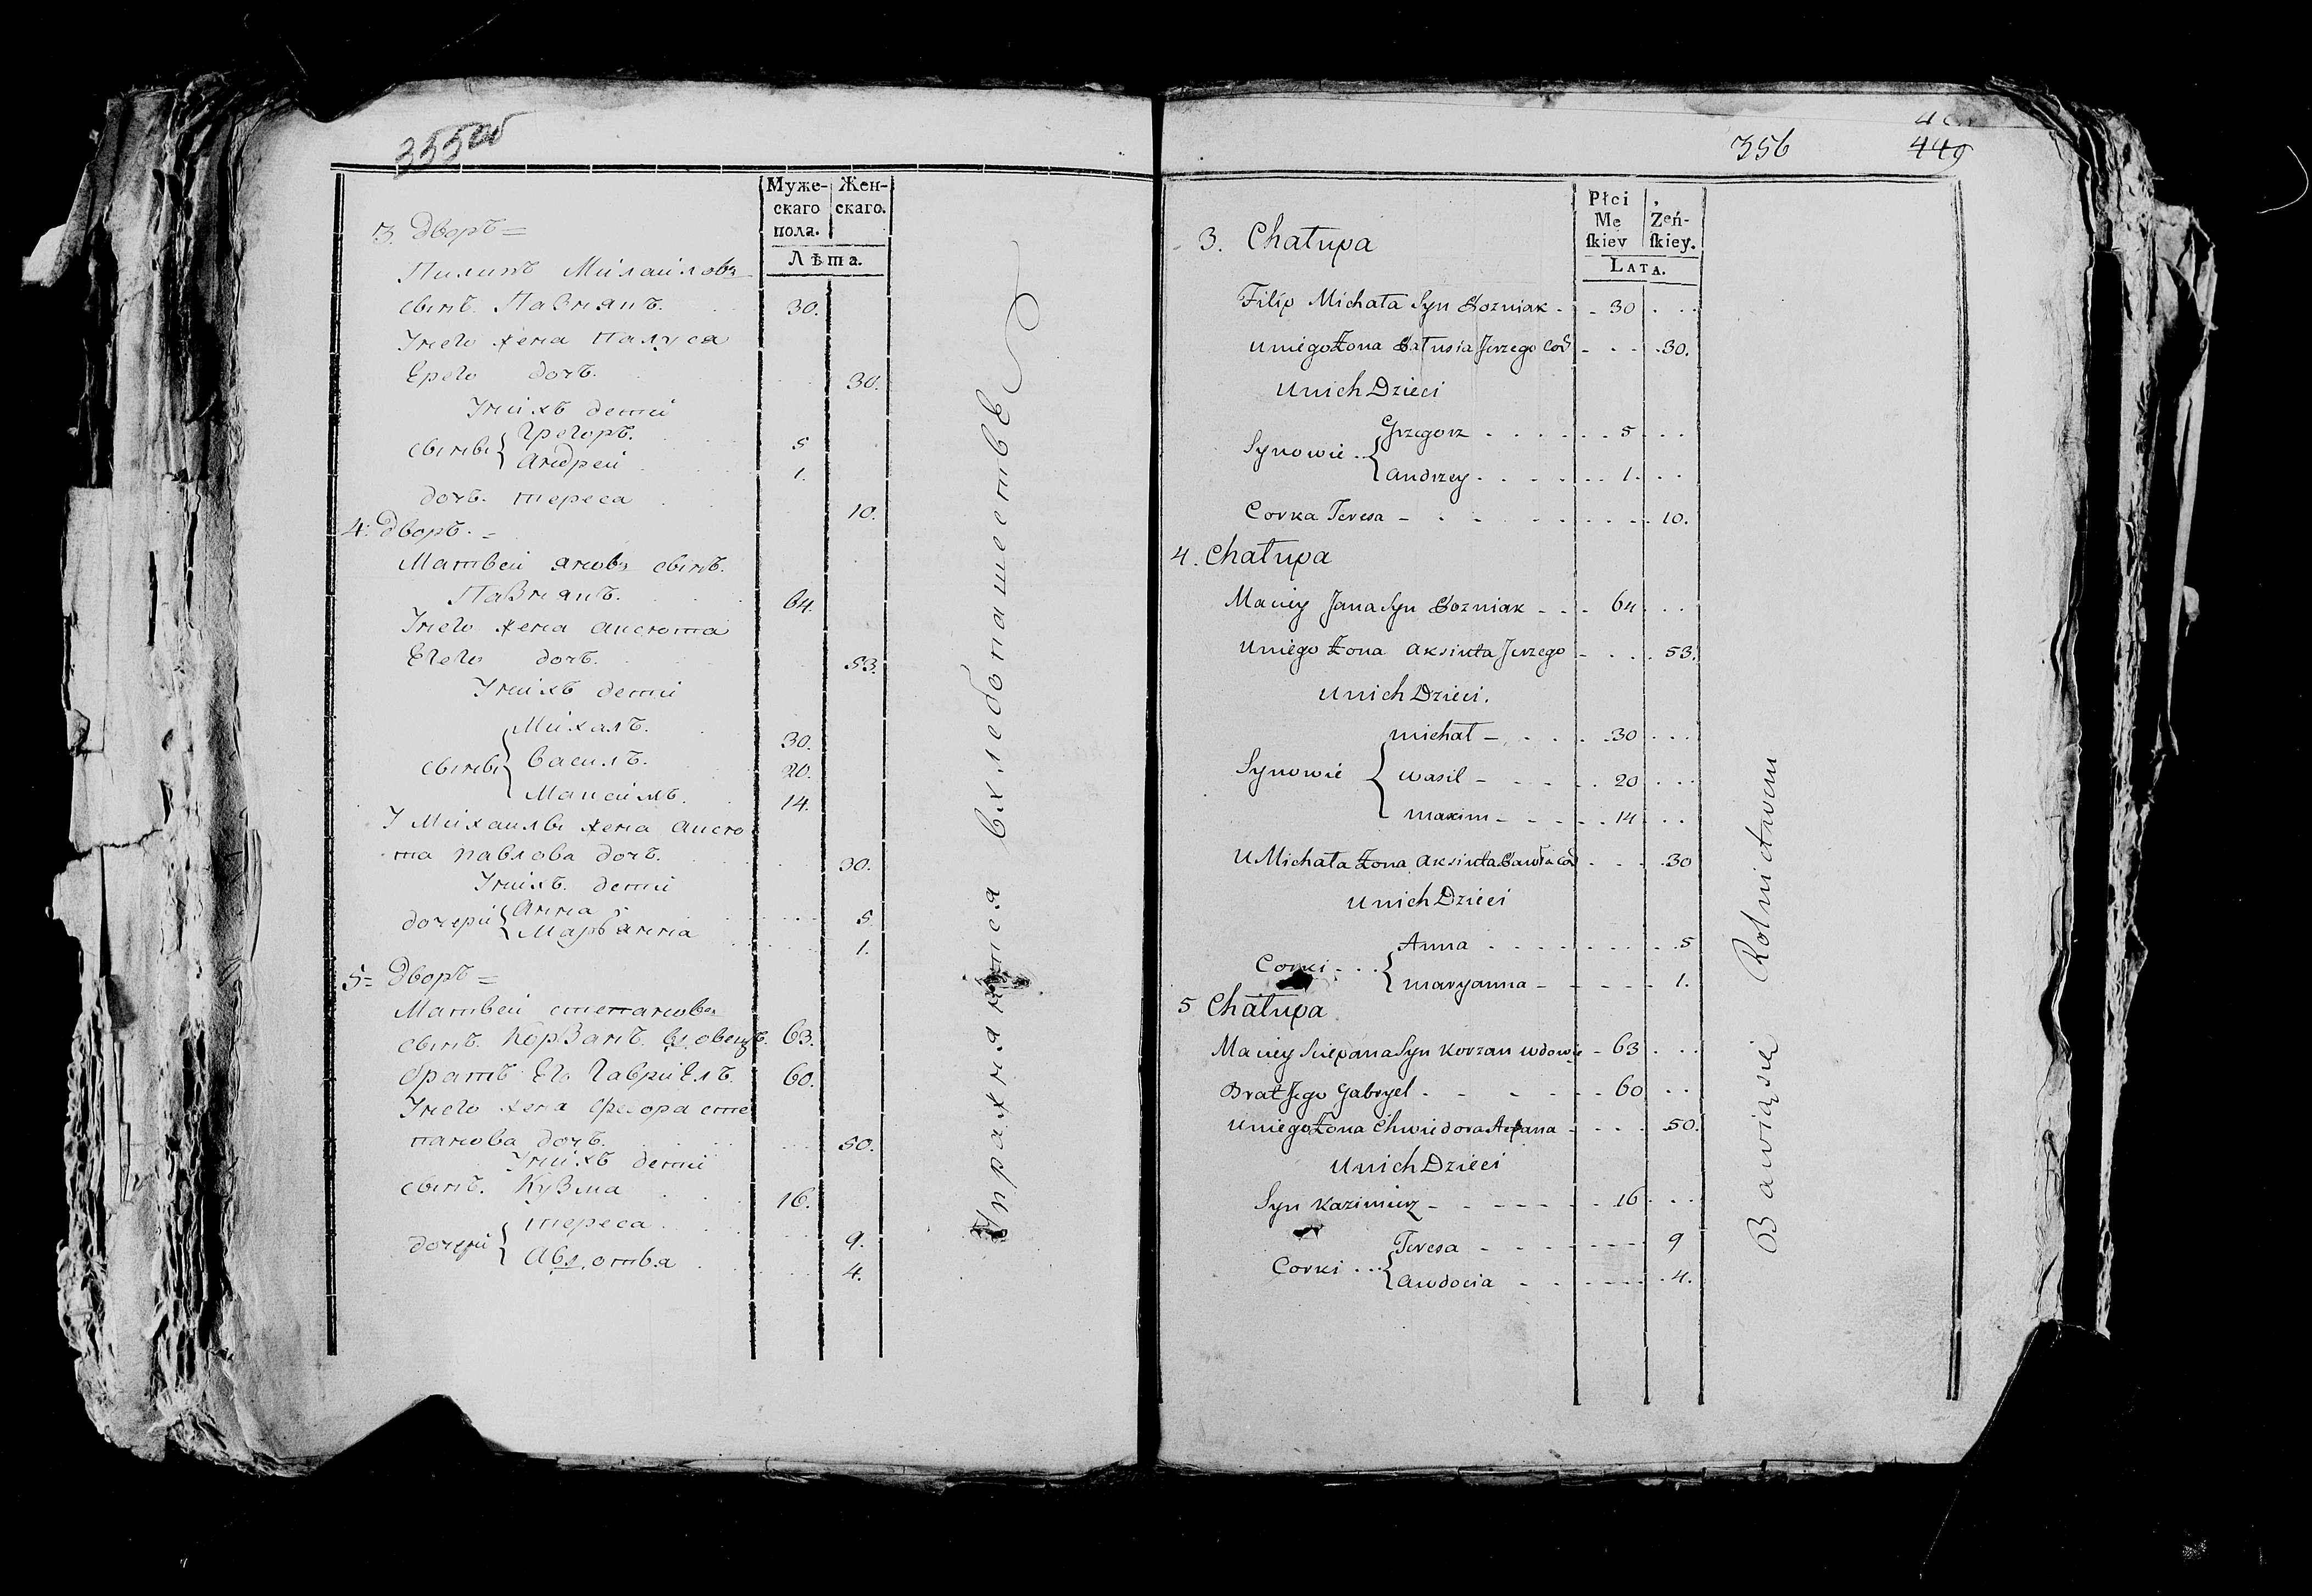 355об
Муже-
скаго
пола.
Жен-
скаго.
Лѣта.
3. Дворъ =
Пилипъ Михайловъ
сынъ. Павнякъ. 30.
У него жена Палуса
Ерего дочь. 30.
У нихъ дети
сыны { Грегоръ. 5
Андрей 1.
дочь. тереса 10.
4. Дворъ. =
Матвей яновъ сынъ.
Павнякъ. 64.
У него жена аксюта
Егего дочь. 53.
У нихъ дети
Михалъ. 30.
сыны { Василъ. 20.
Максимъ. 14.
У Михаилы жена аксю
та павлова дочь. 30.
У нихъ. дети
дочери { Анна 5
Марьянна 1.
5 = Дворъ =
Матвей степановъ
сынъ. Корзанъ. вдовецъ. 63.
братъ Его Гавриелъ. 60.
У него жена федора сте
панова дочь. 50.
У нихъ дети
сынъ. Кузма 16.
дочери { тереса 9.
Авдотья 4.
Упражняются в хлебопашестве
356
449
Płci
Mę
skiey
Żeń-
skiey.
LATA.
3. Chałupa
Filip Michała Syn Poźniak 30
u niego Żona Pałusia Jerzego Cod 30.
u nich Dzieci
Synowie { Grzegorz 5
Andrzey 1.
Corka Teresa 10.
4. Chałupa
Maciey Jana Syn Poźniak 64
u niego Żona Aksiuta Jerzego 53.
u nich Dzieci.
michał 30
Synowie { wasil 20
maxim 14
U Michała Żona Aksiuta Pawła Cod 30
u nich Dzieci
Corki { Anna 5
maryanna 1.
5 Chałupa
Maciey Sciepana Syn Korzan wdowie 63
Brat Jego Gabryel 60
u niego Żona Chwiedora 50.
u nich Dzieci
Syn Kazimierz 16
Corki { Teresa 9
Awdocia 4.
Bawią się Rolnictwem